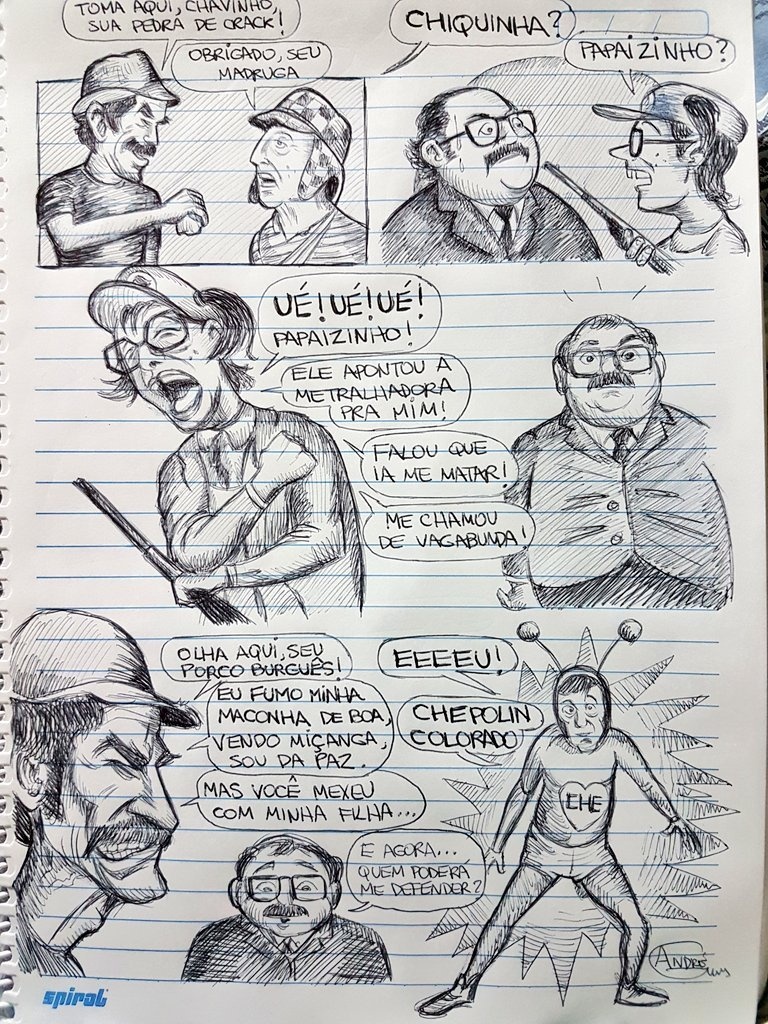 TOMA AQUI, CHAVINHO,
SUA PEDRA DE CRACK!
OBRIGADO, SEU
MADRUGA
CHIQUINHA?
PAPAIZINHO?
UÉ! UÉ! UÉ!
PAPAIZINHO!
ELE APONTOU A
METRALHADORA
PRA MIM!
FALOU QUE
IA ME MATAR!
ME CHAMOU
DE VAGABUNDA!
OLHA AQUI, SEU
PORCO BURGUÊS!
EU FUMO MINHA
MACONHA DE BOA,
VENDO MIÇANGA,
SOU DA PAZ.
MAS VOCÊ MEXEU
COM MINHA FILHA...
E AGORA...
QUEM PODERÁ
ME DEFENDER?
EEEEU!
CHEPOLIN
COLORADO
CHE
ANDRÉ
spiral